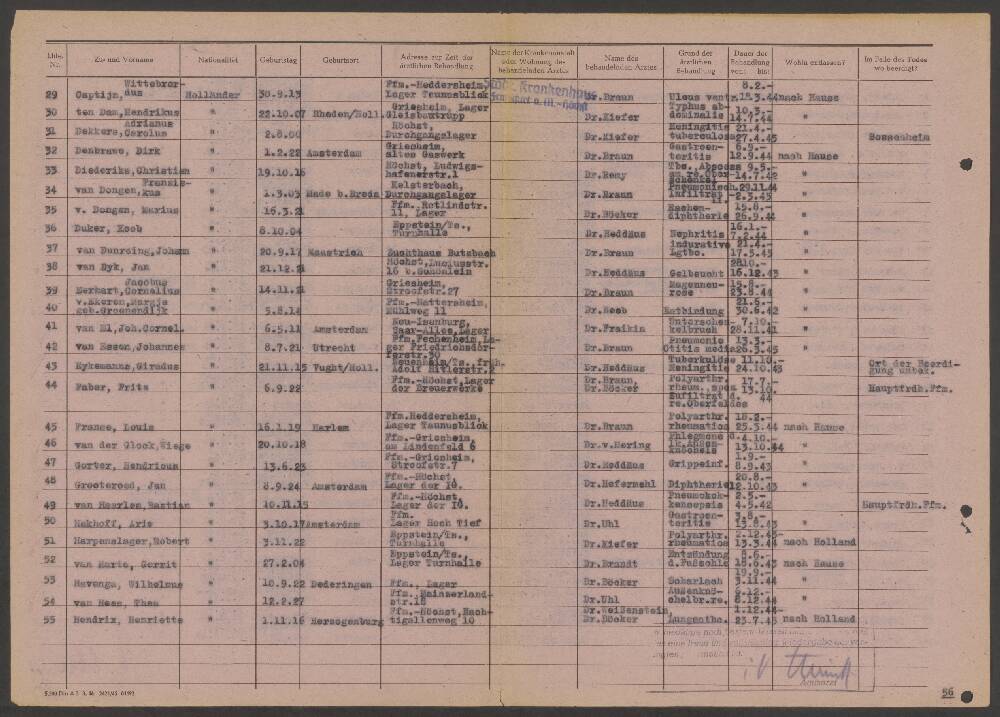 Lfde. Nr. Zu- und Vorname Nationalität Geburtstag Geburtsort Adresse zur Zeit der ärztlichen Behandlung Name der Krankenanstalt oder Wohnung des behandelnden Arztes Name des behandelnden Arztes Grund der ärztlichen Behandlung Dauer der Behandlung von: bis: Wohin entlassen? Im Falle des Todes wo beerdigt?
Städt. Krankenhaus
Frankfurt a. M.-Höchst
Wittebror- Ffm.-Heddersheim, 8.2.-
29 Captijn, dus Holländer 30.9.13 Lager Taunusblick Dr.Braun Ulcus ventr. 18.3.44 nach Hause
Griesheim, Lager Typhus ab- 10.3.-
30 ten Dam, Hendrikus " 22.10.07 Rheden/Holl. Gleisbautrupp Dr.Kiefer dominalis 14.7.44 "
Adrianus Höchst, Meningitis 21.4.-
31 Dekkers, Carolus " 2.8.00 Durchgangslager Dr.Kiefer tuberculosa 27.4.45 Sossenheim
Griesheim, Gastroen- 6.9.-
32 Denbrawe, Dirk " 1.2.22 Amsterdam altes Gaswerk Dr.Braun teritis 12.9.44 nach Hause
Höchst, Ludwigs- Tbc. Abscess 9.5.-
33 Diederiks, Christian " 19.10.16 hafenerstr.1 Dr.Remy am re.Ober- 14.7.42 "
schenkel
Franzis- Kelsterbach, Pneumonisch. 29.11.44
34 van Dongen, kus " 1.3.03 Made b.Breda Durchgangslager Dr.Braun Infiltrat -2.3.45 "
Ffm., Rotlindstr. Rachen- 15.8.-
35 v. Dongen, Marius " 16.3.21 11, Lager Dr.Böcker diphtherie 26.9.44 "
Eppstein/Ts., 16.1.-
36 Duker, Koob " 8.10.04 Turnhalle Dr.Heddäus Nephritis 7.2.44 "
indurative 21.4.-
37 van Dunrding, Johann " 20.9.17 Maastrich Zuchthaus Butzbach Dr.Braun Lgtbc. 17.5.45 "
Höchst, Luciusstr. 2810.-
38 van Dyk, Jan " 21.12.21 16 b.Schönlein Dr.Heddäus Gelbsucht 16.12.43 "
Jacobus Griesheim, Magenneu- 15.8.-
39 Eerhart, Cornelius " 14.11.21 Stroofstr.27 Dr.Braun rose 23.8.44 "
v.Ekeren, Margje Ffm.-Hattersheim, 21.6.-
40 geb.Groenendijk " 5.8.14 Mühlweg 11 Dr.Neeb Entbindung 30.6.42 "
Neu-Isenburg, Unterschen- 7.10.-
41 van El, Joh.Cornel. " 6.5.11 Amsterdam Saar-Allee, Lager Dr.Fraikin kelbruch 28.11.41 "
Ffm. Fechenheim, La- Pneumonie 13.3.-
42 van Esson, Johannes " 8.7.21 Utrecht ger Friedrichsdor- Dr.Braun Otitis media 26.3.45 "
ferstr.30 Tuberkulöse 11.10.-
43 Eykemanns, Giradus " 21.11.15 Vught/Holl. Neuenhain/Ts., früh. Adolf Hitlerstr.2 Dr.Heddäus Meningitis 24.10.43 Ort der Beerdi-gung unbek.
Ffm.-Höchst, Lager Dr.Braun, Polyarthr. 17.7.-
44 Faber, Frits " 6.9.22 der Breuerwerke Dr.Böcker rheum., spez. 13.10. Hauptfrdh.Ffm.
Infiltrat d. 44
re.Oberfeldes
Ffm.Heddersheim, Polyarthr. 18.2.-
45 France, Louis " 16.1.19 Harlem Lager Taunusblick Dr.Braun rheumatica 25.3.44 nach Hause
Ffm.-Griesheim, Phlegmone d. 4.10.-
46 van der Glock, Wiege " 20.10.18 am Lindenfeld 6 Dr.v.Hering lk.Aussen- 13.10.44 "
knöchels
Ffm.-Griesheim, 1.9.-
47 Gorter, Hendricus " 13.6.23 Stroofstr.7 Dr.Heddäus Grippeinf. 8.9.43 "
Ffm.-Höchst, 20.8.-
48 Grooteroed, Jan " 8.9.24 Amsterdam Lager der IG. Dr.Hofermehl Diphtherie 12.10.43 "
Ffm.-Höchst, Pneumokok- 2.5.-
49 van Haarlen, Bastian " 10.11.15 Lager der IG. Dr.Heddäus kensepsis 4.5.42 Hauptfrdh.Ffm.
Ffm. Gastroen- 3.8.-
50 Hakhoff, Arie " 3.10.17 Amsterdam Lager Hoch Tief Dr.Uhl teritis 13.8.43 "
Eppstein/Ts., Polyarthr. 2.12.43-
51 Harpenslager, Robert " 3.11.22 Turnhalle Dr.Kiefer rheumatica 13.3.44 nach Holland
Eppstein/Ts., Entzündung 8.6.-
52 van Harte, Gerrit " 27.2.04 Lager Turnhalle Dr.Brandt d.Fußsohle 18.6.43 nach Hause
19.9.-
53 Havenga, Wilhelmus " 10.9.22 Dederingen Ffm., Lager Dr.Böcker Scharlach 3.11.44 "
Ffm., Mainzerland- Außenknö- 6.12.-
54 van Hees, Theo " 12.2.27 str.18 Dr.Uhl chelbr.re. 8.12.44 "
Ffm.-Höchst, Nach- Dr.Weißenstein, 1.12.44-
55 Hendrix, Henriette " 1.11.16 Herzogenburg tigallenweg 10 Dr.Böcker Lungentbc. 23.7.43 nach Holland
Amtsarzt
56